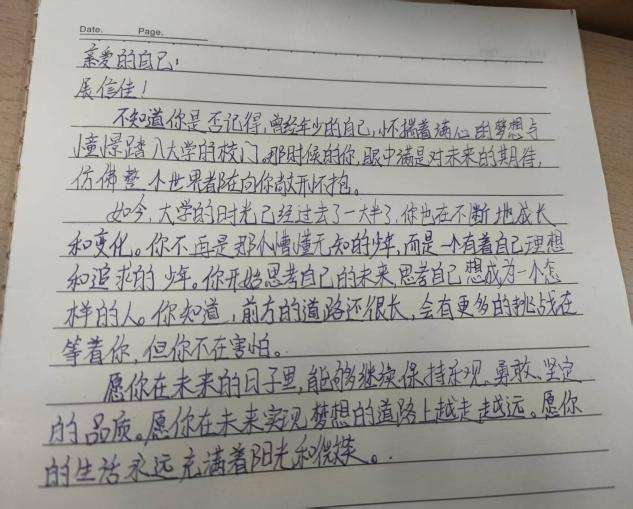 Date. Page.
亲爱的自己:
展信佳!
不知道你是否记得,曾经年少的自己,怀揣着满心的梦想与
憧憬踏入大学的校门。那时候的你,眼中满是对未来的期待,
仿佛整个世界都在向你敞开怀抱。
如今,大学的时光已经过去了一大半了,你也在不断地成长
和变化。你不再是那个懵懂无知的少年,而是一个有着自己理想
和追求的少年。你开始思考自己的未来,思考自己想成为一个怎
样的人。你知道,前方的道路还很长,会有更多的挑战在
等着你,但你不在害怕。
愿你在未来的日子里,能够继续保持乐观、勇敢、坚定
的品质。愿你在未来实现梦想的道路上越走越远。愿你
的生活永远充满着阳光和微笑。